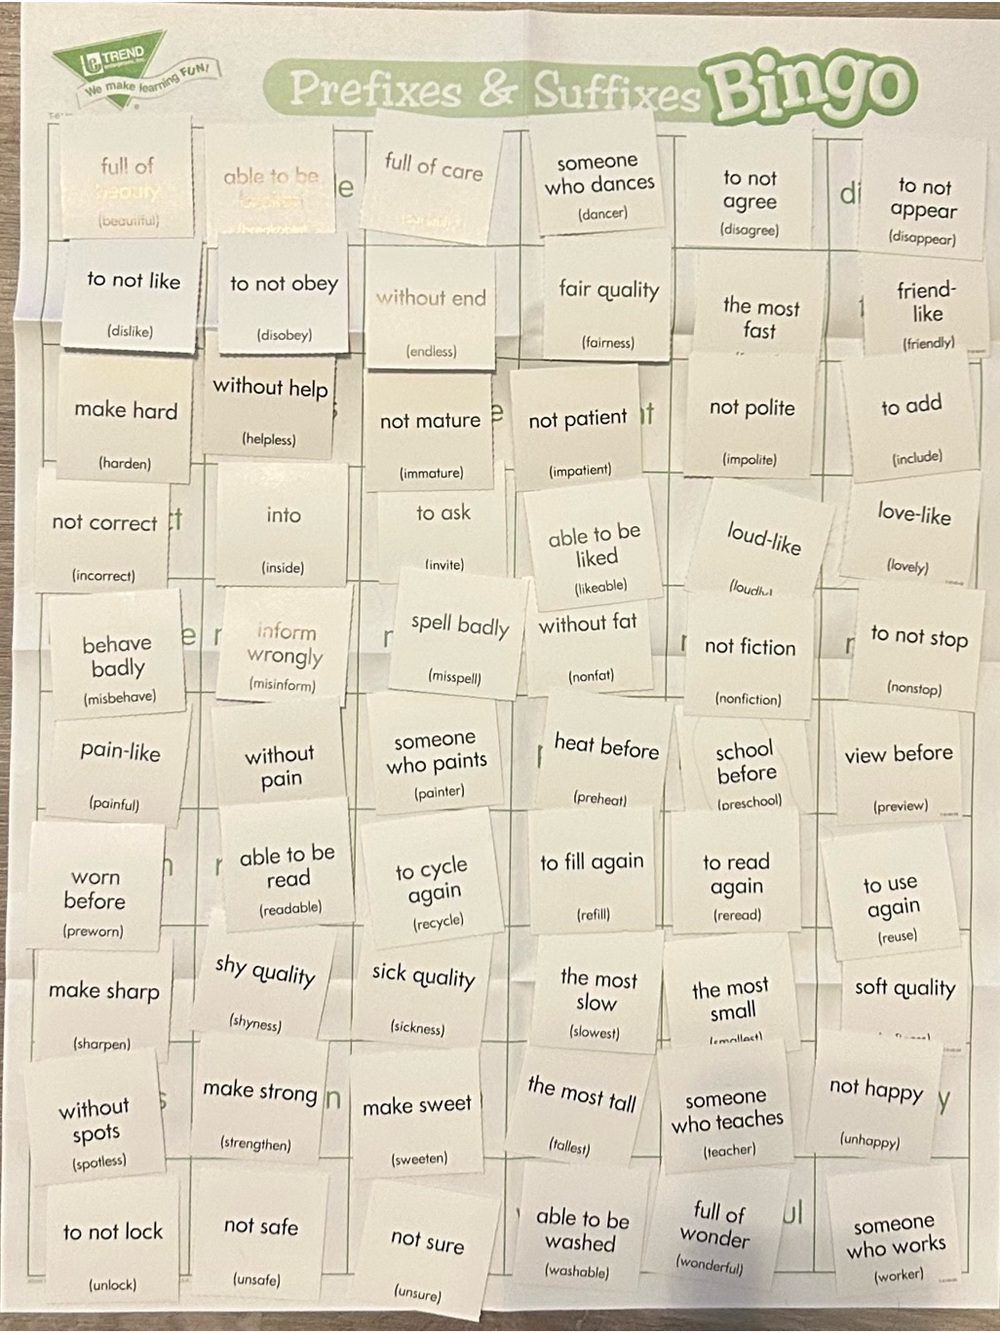 TREND
enterprises, Inc.
We make learning FUN!
Prefixes & Suffixes Bingo
full of
beauty
(beautiful)
able to be
e
full of care
someone
who dances
(dancer)
to not
agree
(disagree)
di
to not
appear
(disappear)
to not like
(dislike)
to not obey
(disobey)
without end
(endless)
fair quality
(fairness)
the most
fast
friend-
like
(friendly)
make hard
(harden)
without help
(helpless)
not mature
(immature)
e
not patient
(impatient)
t
not polite
(impolite)
to add
(include)
not correct
(incorrect)
t
into
(inside)
to ask
(invite)
able to be
liked
(likeable)
loud-like
love-like
(lovely)
behave
badly
(misbehave)
e
r
inform
wrongly
(misinform)
r
spell badly
(misspell)
without fat
(nonfat)
not fiction
(nonfiction)
r
to not stop
(nonstop)
pain-like
(painful)
without
pain
someone
who paints
(painter)
heat before
(preheat)
school
before
(preschool)
view before
(preview)
worn
before
(preworn)
r
able to be
read
(readable)
to cycle
again
(recycle)
to fill again
(refill)
to read
again
(reread)
to use
again
(reuse)
make sharp
(sharpen)
shy quality
(shyness)
sick quality
(sickness)
the most
slow
(slowest)
the most
small
(smallest)
soft quality
without
spots
(spotless)
s
make strong
(strengthen)
n
make sweet
(sweeten)
the most tall
(tallest)
someone
who teaches
(teacher)
not happy
(unhappy)
y
to not lock
(unlock)
not safe
(unsafe)
not sure
(unsure)
able to be
washed
(washable)
full of
wonder
(wonderful)
ul
someone
who works
(worker)